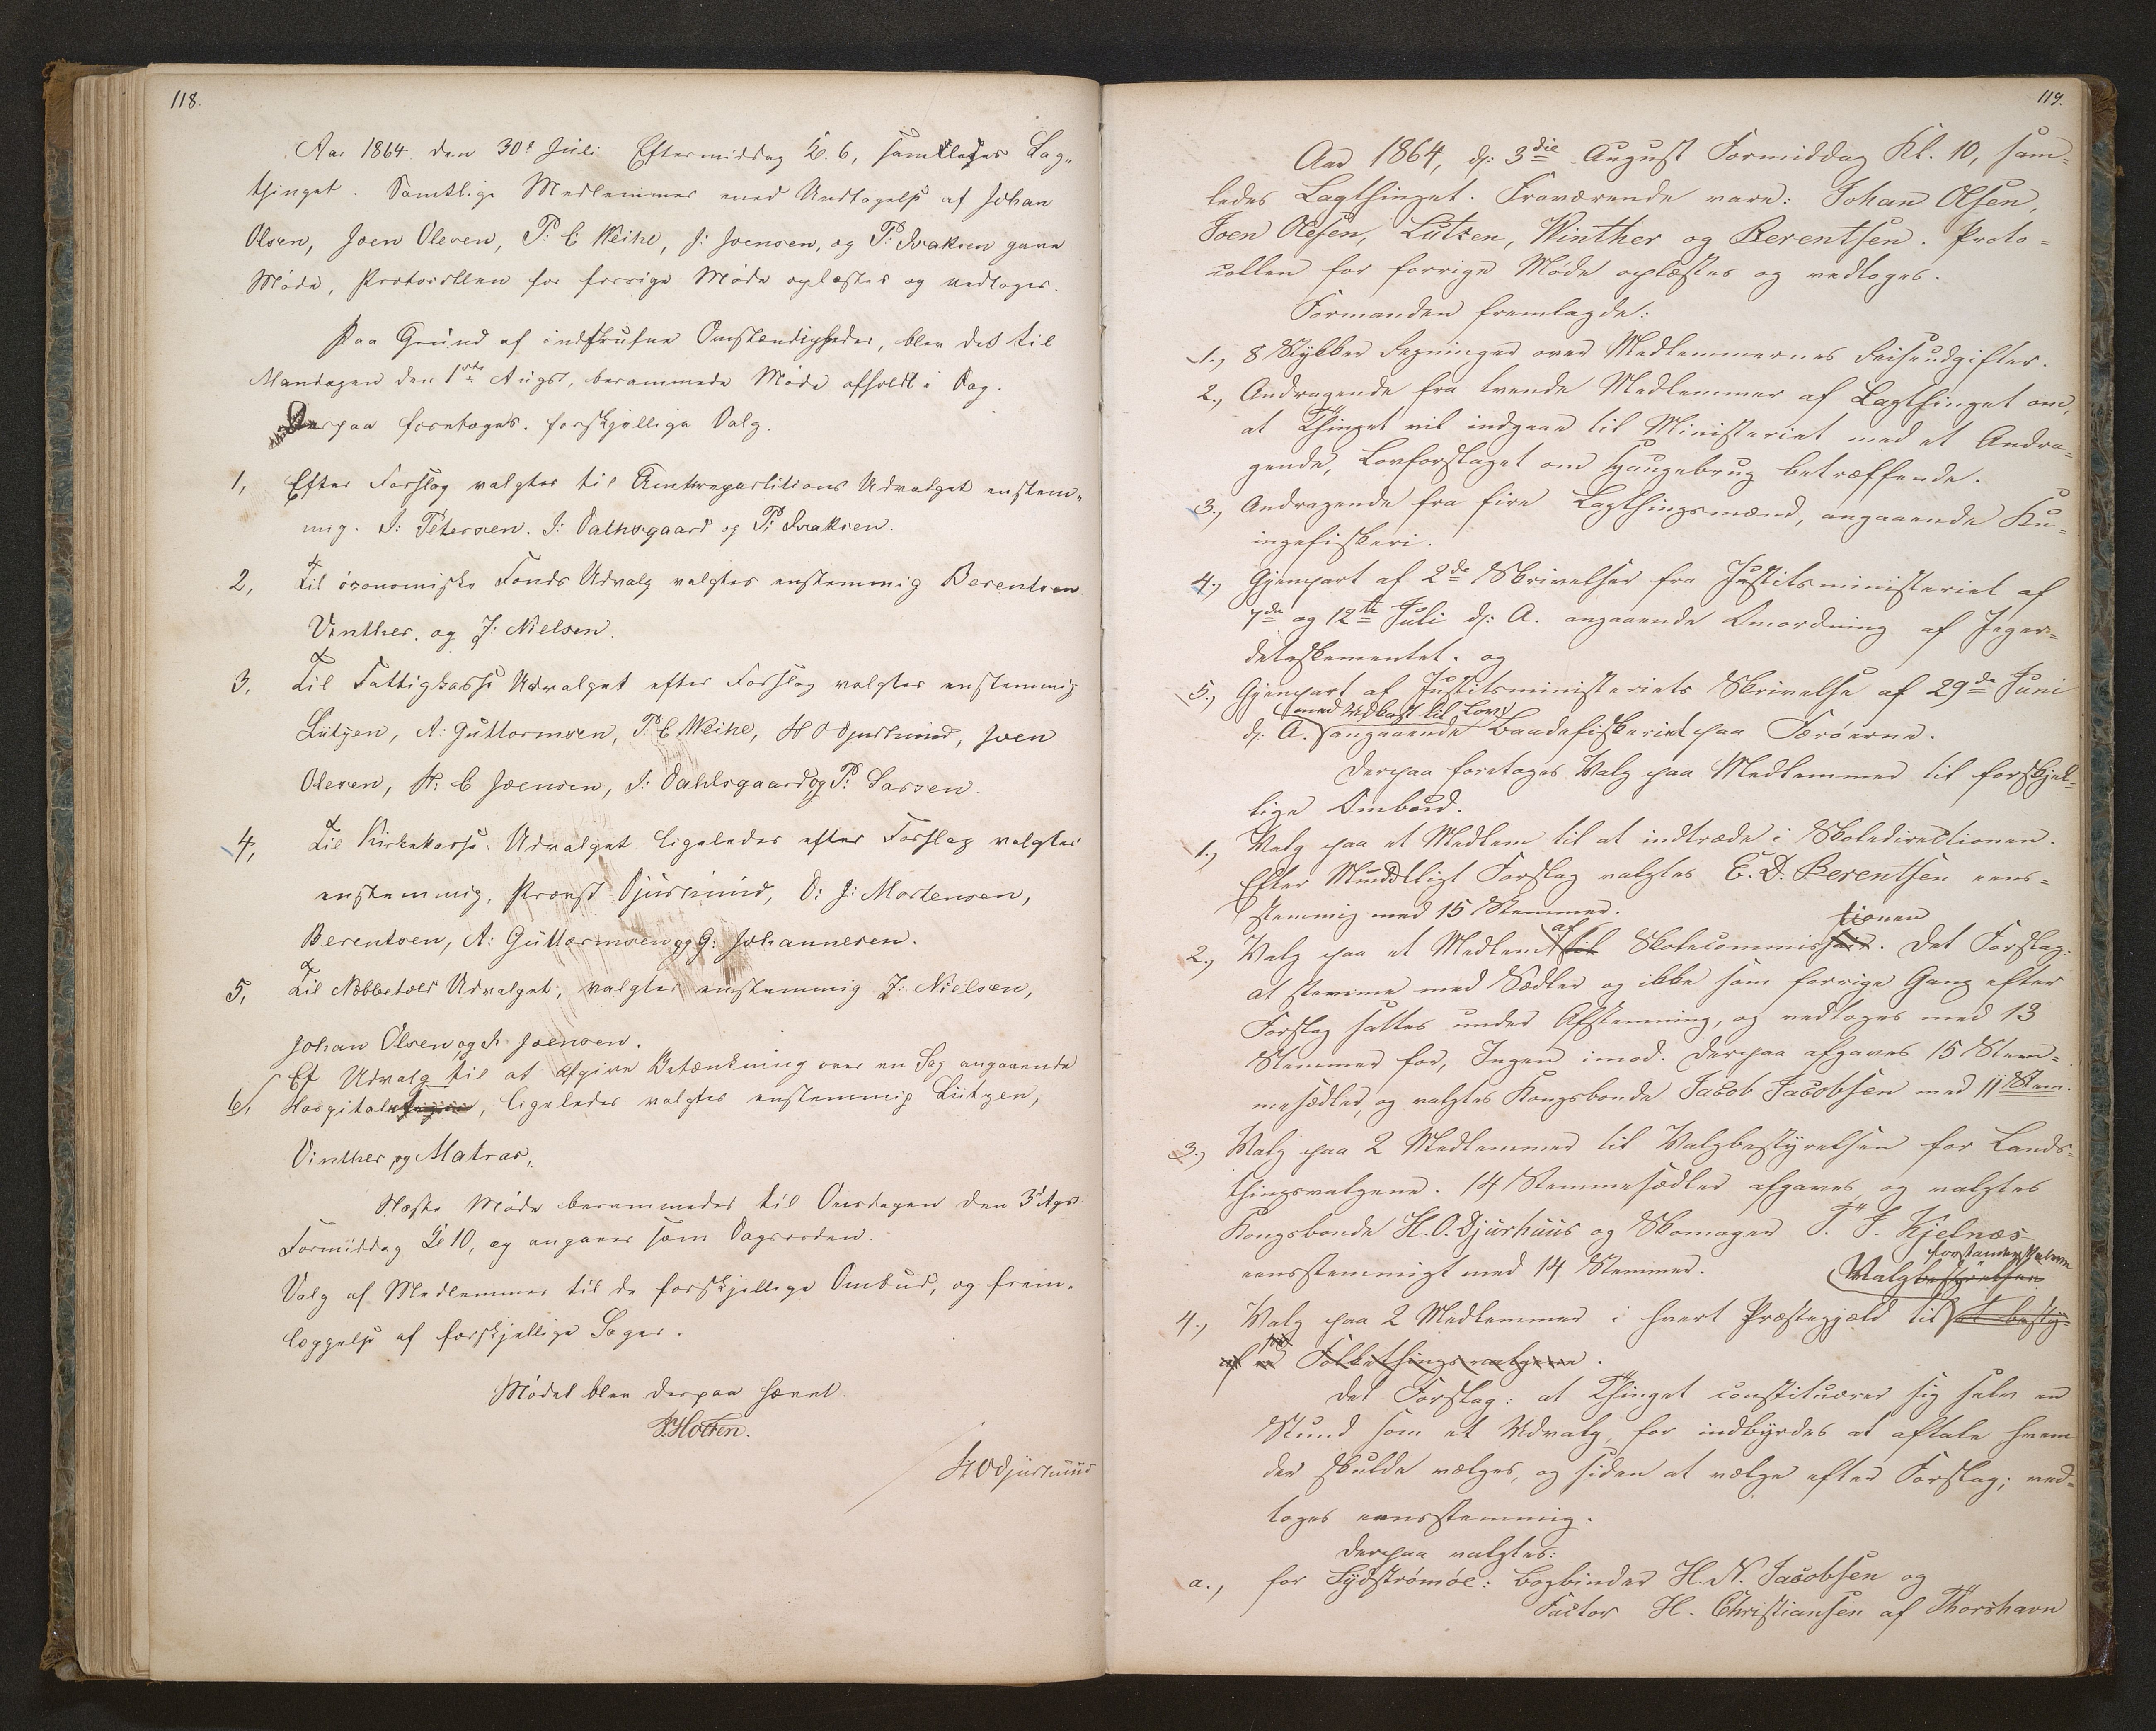 118.
Aar 1864 den 30t Juli Eftermiddag Kl. 6, samledes Lag-
thinget. Samtlige Medlemmer med Undtagelse af Johan
Olsen, Joen Olesen, P: C Weihe, J: Joensen, og P: Isaksen gave
Møde, Protocollen for forrige Møde oplæstes og vedtoges.
Paa Grund af indtrufne Omstændigheder, blev det til
Mandagen den 1ste August, berammede Møde afholdt i Dag.
Derpaa foretoges forskjellige Valg.
1, Efter Forslag valgtes til Amtsrepartitions Udvalget enstem-
mig. J: Petersen. J: Dahlsgaard og P: Isaksen.
2, Til öconomiske Fonds Udvalg valgtes enstemmig Berentsen
Vinther, og J: Nielsen.
3, Til Fattigkasse Udvalget efter Forslag valgtes enstemmig
Lützen, A: Guttormsen, P. C Weihe, H O Djurhuus, Joen
Olesen, H. C Joensen, J: Dahlsgaard og P: Larsen.
4, Til Kirkekasse Udvalget ligeledes efter Forslag valgtes
enstemmig, Provst Djurhuus, O: J: Mortensen,
Berentsen, A: Guttormsen og G: Johannesen.
5, Til Næbbetolds Udvalget, valgtes enstemmig J: Nielsen,
Johan Olsen og J. Joensen.
Et Udvalg til at afgive Betænkning over en Sag angaaende
6, Hospitalet, ligeledes valgtes enstemmig Lützen,
Vinther og Matras,
Næste Møde berammedes til Onsdagen den 3d Ags
Formiddag Kl 10, og angaves som Dagsorden.
Valg af Medlemmer til de forskjellige Ombud, og frem-
læggelse af forskjellige Sager.
Mødet blev derpaa hævet.
H O Djurhuus
119.
Aar 1864, d: 3die August Formiddag Kl. 10, sam-
ledes Lagthinget. Fraværende vare: Johan Olsen,
Joen Olesen, Lützen, Winther og Berentsen. Proto-
collen for forrige Møde oplæstes og vedtoges.
Formanden fremlagde:
1., 8 Stykker Regninger over Medlemmernes Reiseudgifter.
2., Andragende fra tvende Medlemmer af Lagthinget om,
at Thinget vil indgaae til Ministeriet med et Andra-
gende, Lovforslaget om Haugebrug betræffende.
3., Andragende fra fire Lagthingsmænd, angaaende Ku-
ingefiskeri.
4., Gjenpart af 2de Skrivelser fra Justitsministeriet af
7de og 12te Juli d: A. angaaende Omordning af Jæger-
detaskementet. og
5., Gjenpart af Justitsministeriets Skrivelse af 29de Juni
(med Udkast til Lov)
d: A. angaaende Baadefiskeriet paa Færøerne.
Derpaa foretoges Valg paa Medlemmer til forskjel-
lige Ombud.
1., Valg paa et Medlem til at indtræde i Skoledirectionen.
Efter Mundtligt Forslag valgtes E. D. Berentsen eens-
stemmig med 15 Stemmer.
af tionen
2., Valg paa et Medlem til Skolecommis. Det Forslag:
at stemme med Sedler og ikke som forrige Gang efter
Forslag sattes under Afstemning, og vedtoges med 13
Stemmer for, Ingen imod. Derpaa afgaves 15 Stem-
mesedler, og valgtes Kongsbonde Jacob Jacobsen med 11 Stem.
3., Valg paa 2 Medlemmer til Valgbestyrelsen for Lands-
thingsvalgene. 14 Stemmesedler afgaves og valgtes
Kongsbonde H. O. Djurhuus og Skomager T. J. Kjelnæs
eensstemmigt med 14 Stemmer.
Valgbestyrelsen
4., Valg paa 2 Medlemmer i hvert Præstegjæld til et besty-
Folkethingsvalgene.
Det Forslag: at Thinget constituerer sig selv en
Stund som et Udvalg, for indbyrdes at aftale hvem
der skulde vælges, og siden at vælge efter Forslag; ved-
toges eensstemmig.
Derpaa valgtes:
a., for Sydstrømøe: Bogbinder H. N. Jacobsen og
Factor H. Christiansen af Thorshavn